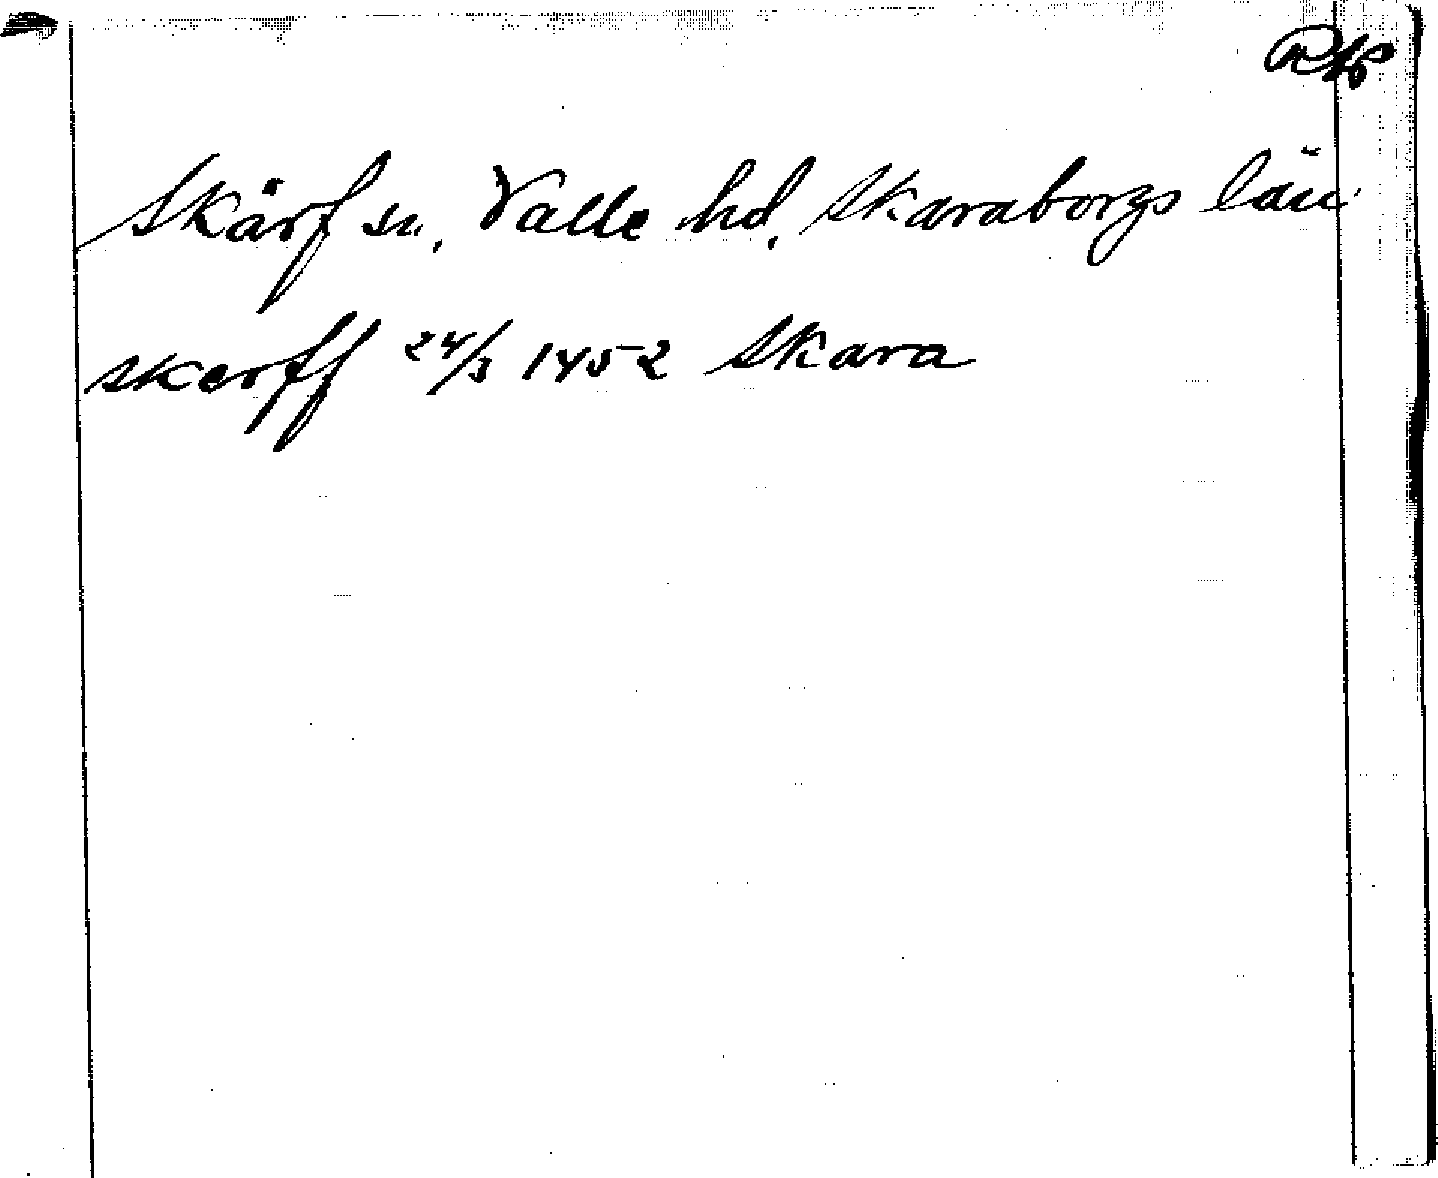 Skärf sn, Valle hd, Skaraborgs län
skerff 24/3 1452 Skara